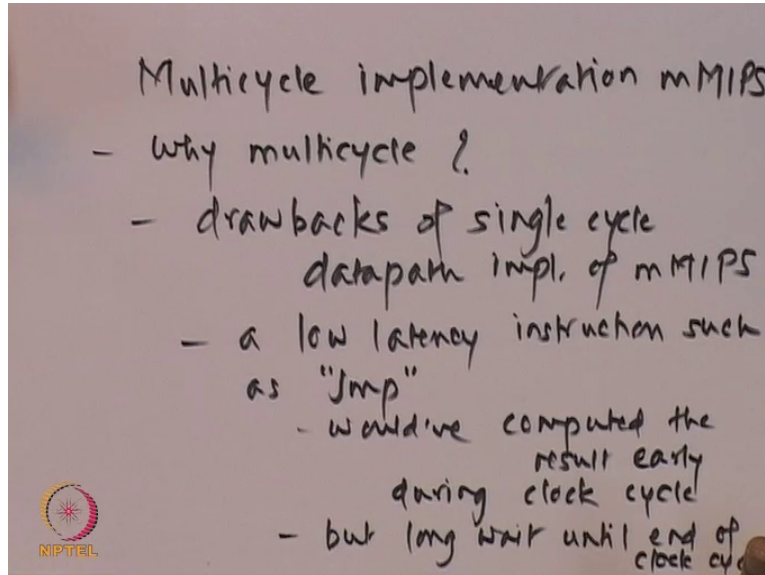 Multicycle implementation mMIPS
- why multicycle ?
- drawbacks of single cycle
datapath impl. of mMIPS
- a low latency instruction such
as "Jmp"
- would've computed the
result early
during clock cycle
- but long wait until end of
clock cyc
NPTEL